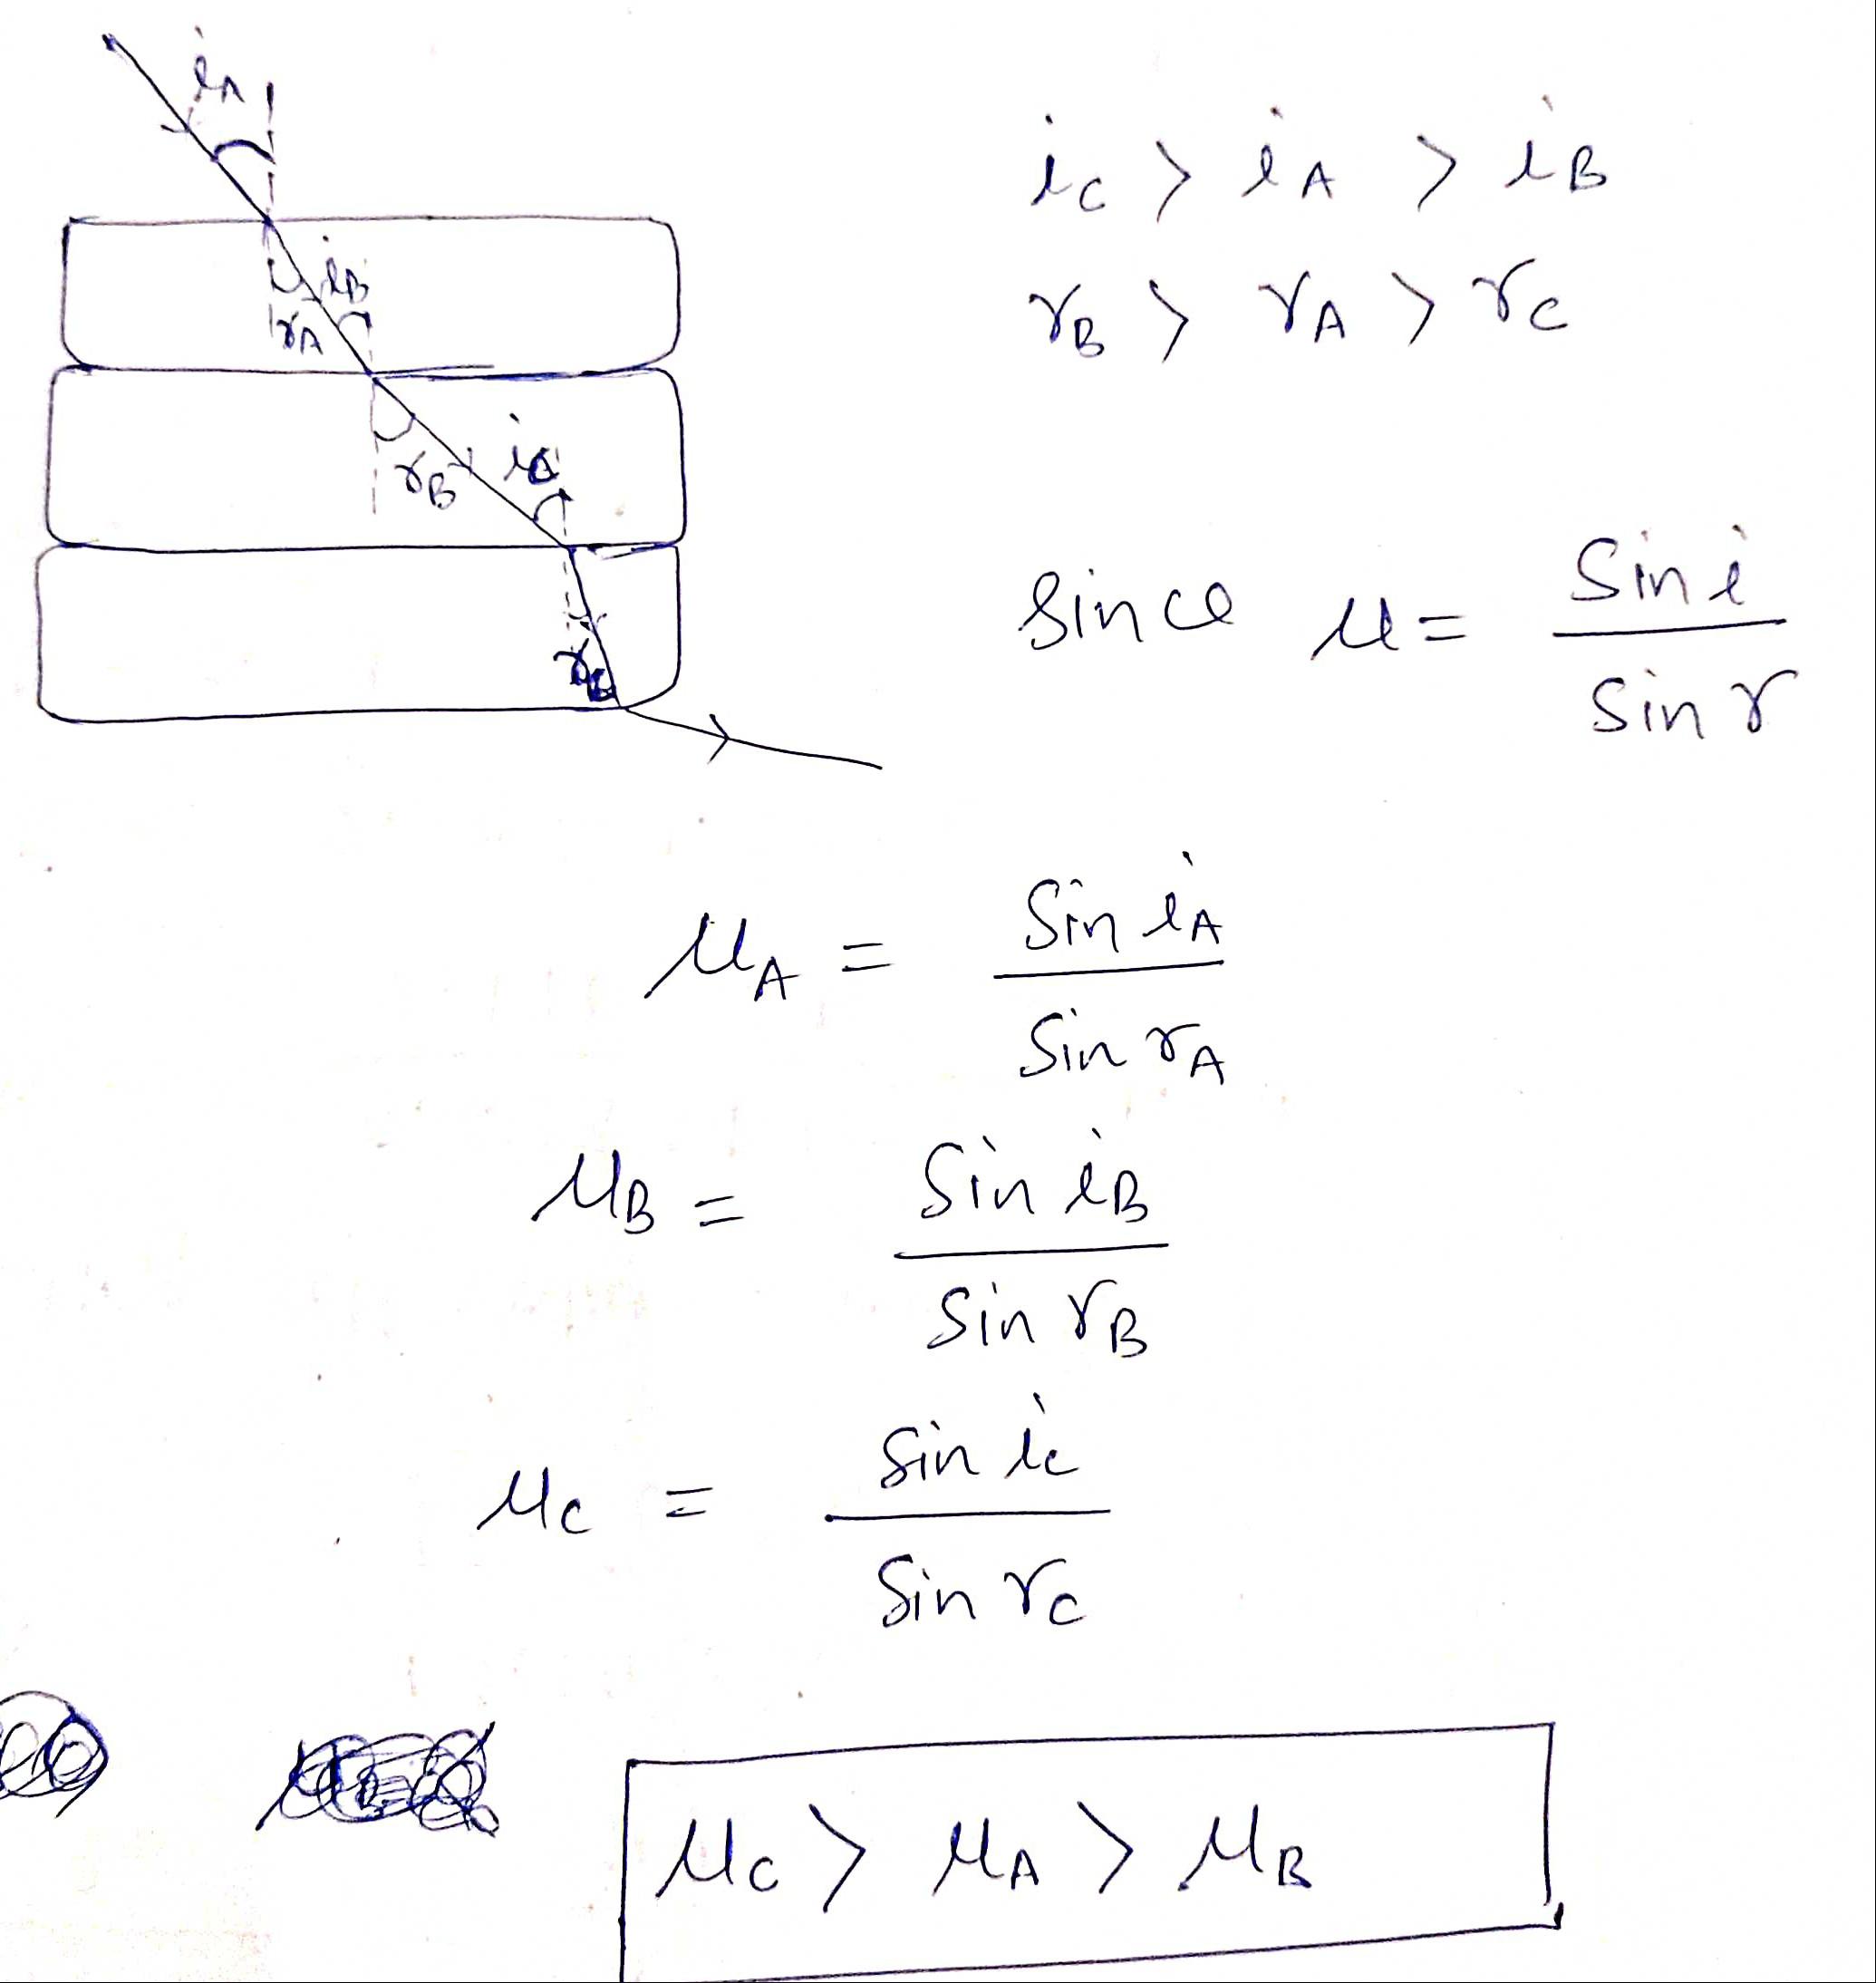 iA
iB
rA
iC
rB
rC
iC > iA > iB
rB > rA > rC
Since μ = Sin i / Sin r
μA = Sin iA / Sin rA
μB = Sin iB / Sin rB
μC = Sin iC / Sin rC
μC > μA > μB